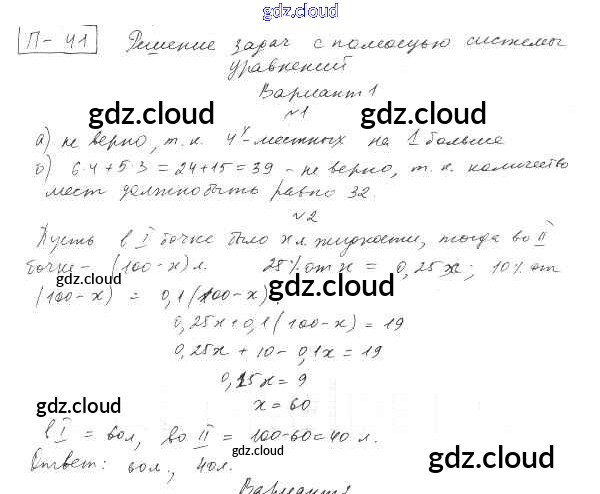 gdz.cloud
П-41 Решение задач с помощью системы
уравнений
Вариант 1
gdz.cloud gdz.cloud
№1
а) не верно, т.к. 4х-местных на 1 больше
б) 6·4+5·3=24+15=39 - не верно, т.к. количество
мест должно быть равно 32.
№2
Пусть в I бочке было х л жидкости, тогда во II
бочке - (100-х) л. 25% от х = 0,25х; 10% от
gdz.cloud gdz.cloud
(100-х) = 0,1(100-х)
0,25х+0,1(100-х)=19
0,25х+10-0,1х=19
0,15х=9
gdz.cloud
х=60
в I = 60л, во II = 100-60=40 л.
gdz.cloud
Ответ: 60л., 40л.
gdz.cloud
Вариант